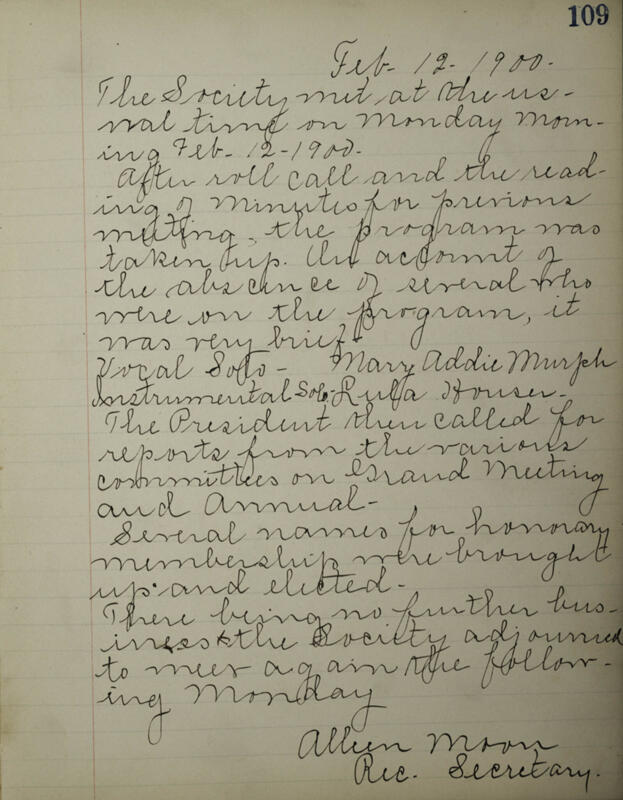 109
Feb- 12- 1900-
The Society met at the us-
ual time on Monday morn-
ing Feb- 12-1900.
After roll call and the read-
ing of minutes for previous
meeting, the program was
taken up. On account of
the abscence of several who
were on the program, it
was very brief-
Vocal Solo- Mary Addie Murph
Instrumental Solo- Ruba Houser-
The President then called for
reports from the various
committees on Grand Meeting
and Annual-
Several names for honorary
membership were brought
up and elected-
There being no further bus-
iness the Society adjourned
to meet again the follow-
ing Monday
Alleen Moon
Rec. Secretary.